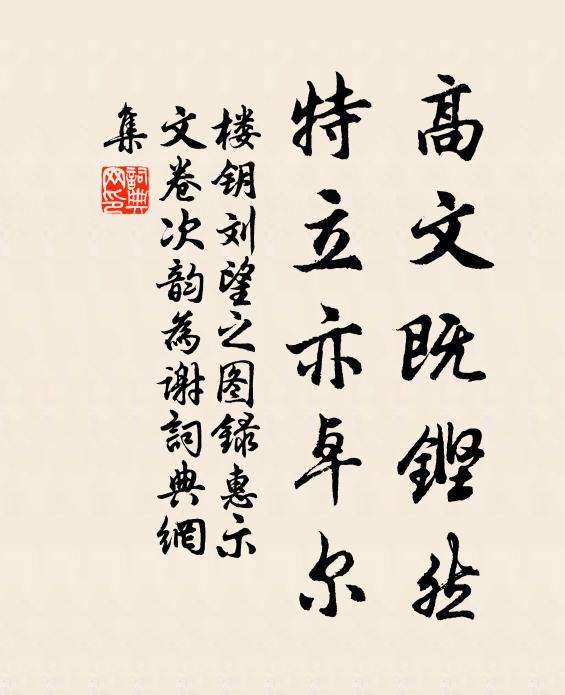 高文既鏗然
特立亦卓尔
楼钥刘望之图録惠示
文卷次韵为谢詞典網
集
詞典
网印